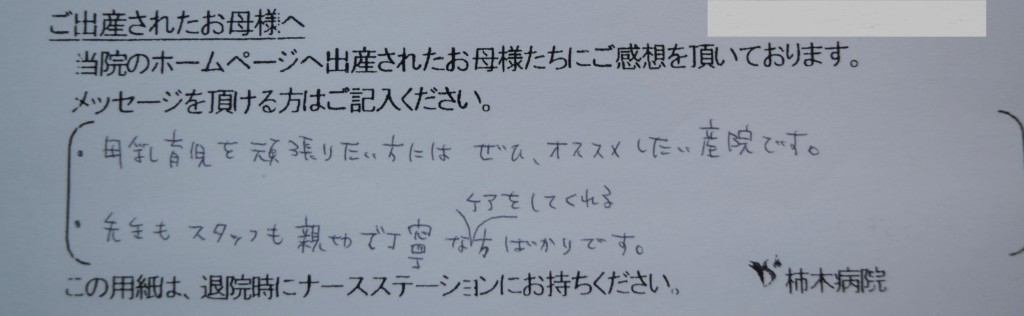 ご出産されたお母様へ
当院のホームページへ出産されたお母様たちにご感想を頂いております。
メッセージを頂ける方はご記入ください。
・母乳育児を頑張りたい方には ぜひ、オススメしたい産院です。
ケアをしてくれる
・先生もスタッフも親切で丁寧な方ばかりです。
この用紙は、退院時にナースステーションにお持ちください。
柿木病院